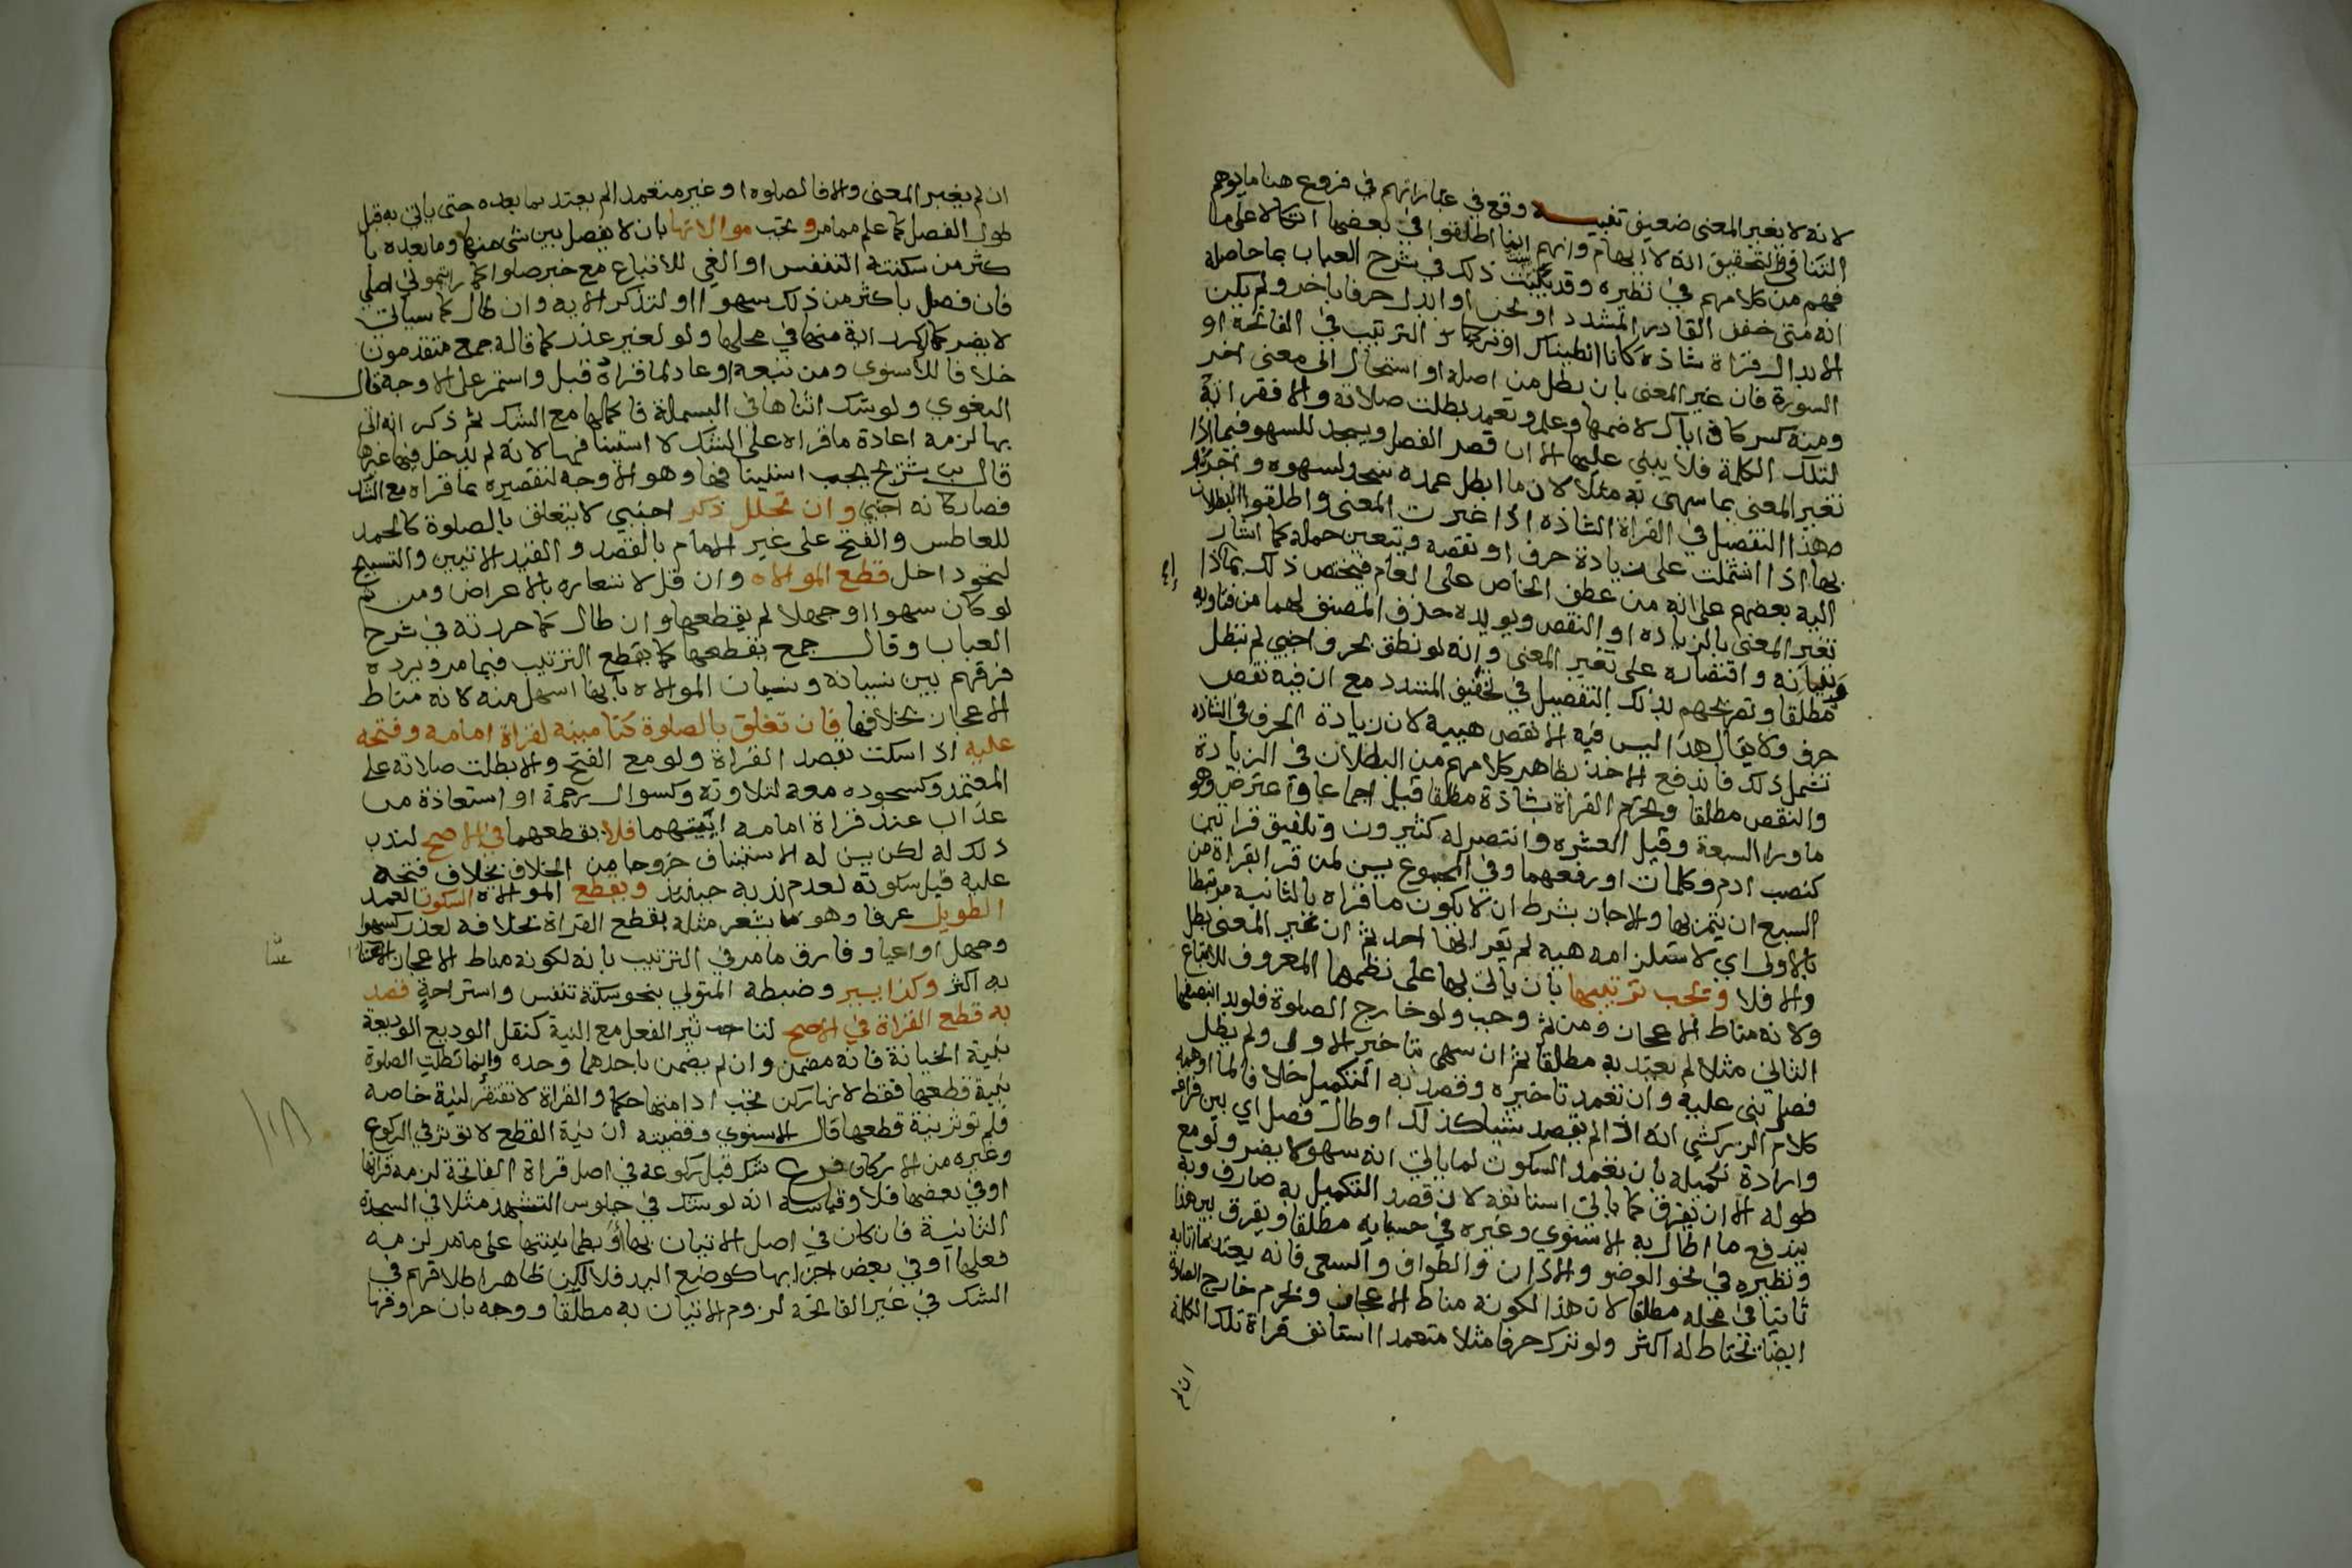 لانه لا يغير المعنى ضعيف تنبيه وقع في عباراتهم في فروع هنا ما يوهم
التنافي والتحقيق انه لا ايهام وانهم انما اطلقوا في بعضها اتكالا على ما
فهم من كلامهم في نظيره وقد بينت ذلك في شرح العباب بما حاصله
انه متى خفف القادر المشدد او لحن او ابدل حرفا باخر ولم يكن
الابدال قراة شاذة كانا انطيناك او ترك الترتيب في الفاتحة او
السورة فان غير المعنى بان بطل من اصله او استحال الى معنى اخر
ومنه كسر كاف اياك لا ضمها وعلم وتعمد بطلت صلاته والا فقراته
لتلك الكلمة فلا يبني عليها الا ان قصر الفصل ويسجد للسهو فيما اذا
تغير المعنى بما سهى به مثلا لان ما ابطل عمده سجد لسهوه
هذا التفصيل في القراة الشاذه اذا غيرت المعنى واطلقوا البطلان
بها اذا اشتملت على زيادة حرف او نقصه ويتعين حمله كما اشار
اليه بعضهم على انه من عطف الخاص على العام فيختص ذلك بما اذا
تغير المعنى بالزياده او النقص ويويده حذف المصنف لهما من فتاويه
وتبيانه واقتصاره على تغير المعنى وانه لو نطق بحرف اجنبي لم تبطل
مطلقا وتصريحهم بذلك التفصيل في تخفيف المشدد مع ان فيه نقص
حرف ولا يقال هذا ليس فيه الا نقص هيية لان زيادة الحرف في الشاذه
تشمل ذلك فاندفع الاخذ بظاهر كلامهم من البطلان في الزيادة
والنقص مطلقا وتحرم القراة بشاذة مطلقا قيل اجماعا واعترض وهو
ما ورا السبعة وقيل العشره وانتصر له كثيرون وتلفيق قراتين
كنصب ادم وكلمات او رفعهما وفي المجموع يسن لمن قرا بقراة من
السبع ان يتم بها والا جاز بشرط ان لا يكون ما قراه بالثانية مرتبطا
بالاولى اي لاستلزامه هيه لم يقرا بها احد ثم ان غير المعنى بطل
والا فلا وتجب ترتيبها بان ياتي بها على نظمها المعروف للاتباع
ولانه مناط الاعجاز ومن ثم وجب ولو خارج الصلوة فلو بدا بنصفها
الثاني مثلا لم يعتد به مطلقا ثم ان سهى بتاخير الاول ولم يطل
فصل بنى عليه وان تعمد تاخيره وقصد به التكميل خلافا لما اوهمه
كلام الزركشي انه اذا لم يقصد شيا كذلك او طال فصل اي بين فراغه
وارادة تكميله بان تعمد السكوت لما ياتي انه سهوا لا يضر ولو مع
طوله الا ان يفرق كما ياتي استانفه لان قصد التكميل به صارف وبه
يندفع ما اطال به الاسنوي وغيره في حسبانه مطلقا ويفرق بين هنا
ونظيره في نحو الوضو والاذان والطواف والسعي فانه يعتد بما اتى به
ثانيا في محله مطلقا لان هذا لكونه مناط الاعجاز ويحرم خارج الصلاة
ايضا يحتاط له اكثر ولو ترك حرفا مثلا متعمدا استانف قراة تلك الكلمة
ان لم
ان لم يغير المعنى والا فالصلوه او غير متعمد لم يعتد بما بعده حتى ياتي به قبل
طول الفصل كما علم مما مر وتجب موالاتها بان لا يفصل بين شى منها وما بعده با
كثر من سكتة التنفس او العي للاتباع مع خبر صلوا كما رايتموني اصلي
فان فصل باكثر من ذلك سهوا او لتذكر الايه وان طال كما سياتي
لا يضر كما لو كرر اية منها في محلها ولو لغير عذر كما قاله جمع متقدمون
خلافا للاسنوي ومن تبعه او عاد لما قراه قبل واستمر على الاوجه قال
البغوي ولو شك اثناها في البسملة فاكملها مع الشك ثم ذكر انه اتى
بها لزمه اعادة ما قراه على الشك لا استينافها لانه لم يدخل فيها غيرها
قال بن شريح يجب استينافها وهو الاوجه لتقصيره بما قراه مع الشك
فصار كانه اجنبي وان تخلل ذكر اجنبي لا يتعلق بالصلوة كالحمد
للعاطس والفتح على غير الامام بالقصد و القيد الاتيين والتسبيح
لنحو داخل قطع الموالاه وان قل لاشعاره بالاعراض ومن ثم
لو كان سهوا او جهلا لم يقطعها وان طال كما حررته في شرح
العباب وقال جمع يقطعها كما يقطع الترتيب فيما مر ويرده
فرقهم بين نسيانه ونسيان الموالاه بانها اسهل منه لانه مناط
الاعجاز بخلافها فان تعلق بالصلوة كتامينه لقراة امامه وفتحه
عليه اذا سكت بقصد القراة ولو مع الفتح والا بطلت صلاته على
المعتمد وكسجوده معه لتلاوته وكسوال رحمة او استعاذة من
عذاب عند قراة امامه ايتيهما فلا يقطعهما في الاصح لندب
ذلك له لكن يسن له الاستيناف خروجا من الخلاف بخلاف فتحه
عليه قبل سكوته لعدم ندبه حينئذ ويقطع الموالاه السكوت العمد
الطويل عرفا وهو ما يشعر مثله بقطع القراة بخلافه لعذر كسهو
وجهل او اعيا وفارق ما مر في الترتيب بانه لكونه مناط الاعجاز
به اكثر وكذا يسير وضبطه المتولي بنحو سكتة تنفس واستراحة قصد
به قطع القراة في الاصح لتاثير الفعل مع النية كنقل الوديع الوديعة
بنية الخيانة فانه مضمن وان لم يضمن باحدهما وحده وانما تبطل الصلوة
بنية قطعها فقط لانها ركن تجب ادامتها حكما والقراة لا تفتقر لنية خاصه
فلم توثر نية قطعها قال الاسنوي وقضيته ان نية القطع لا توثر في الركوع
وغيره من الاركان فرع شك قبل ركوعه في اصل قراة الفاتحة لزمه قراتها
او في بعضها فلا وقياسه انه لو شك في جلوس التشهد مثلا في السجدة
الثانية فان كان في اصل الاتيان بها او بطمانينتها على ما مر لزمه
فعلها او في بعض اجزايها كوضع اليد فلا لكن ظاهر اطلاقهم في
الشك في غير الفاتحة لزوم الاتيان به مطلقا ووجه بان حروفها